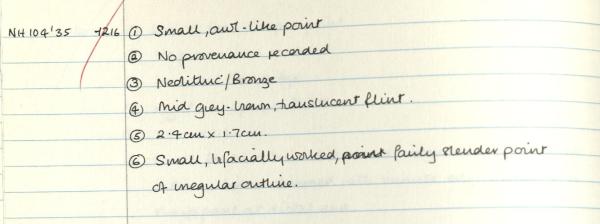 NH104'35 -1216 ① Small, awl-like point
② No provenance recorded
③ Neolithic/Bronze
④ Mid grey-brown, translucent flint.
⑤ 2.4cm x 1.7cm.
⑥ Small, bifacially worked, point fairly slender point
of irregular outline.